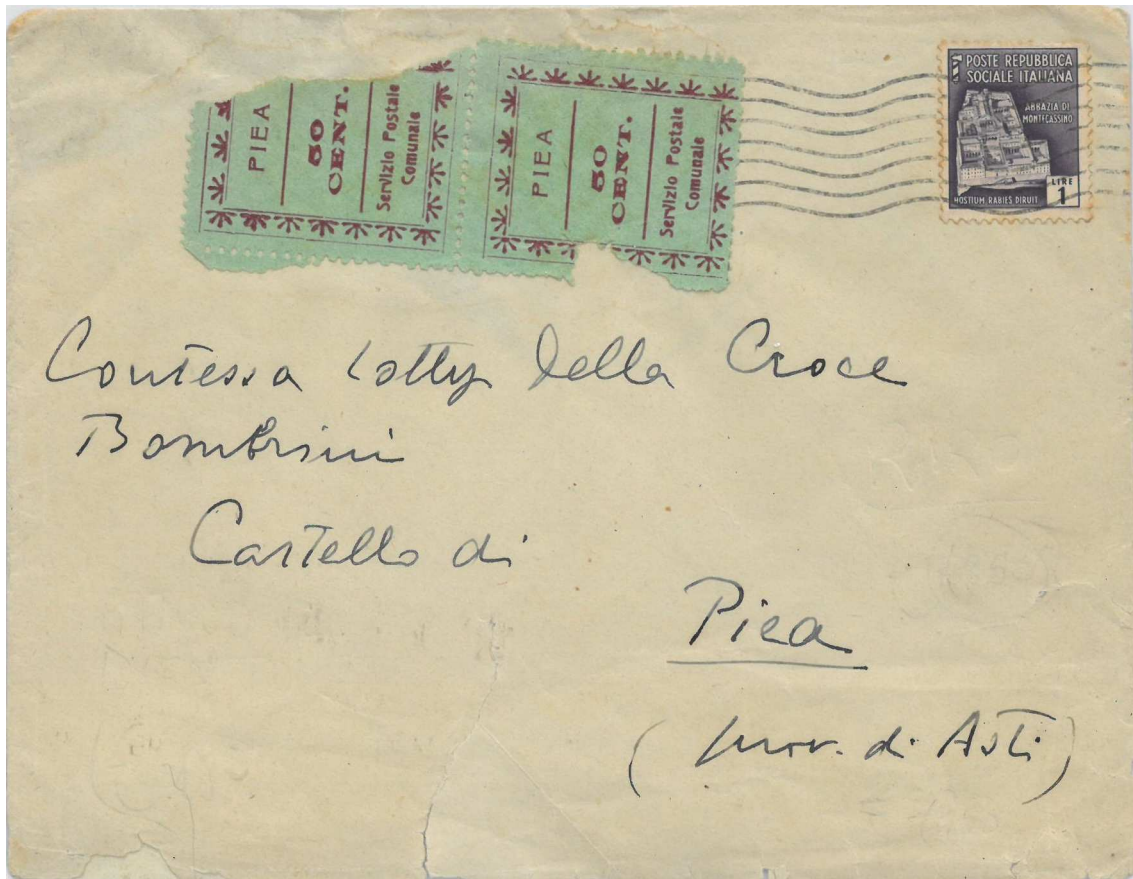 PIEA
50
CENT.
Servizio Postale
Comunale
PIEA
50
CENT.
Servizio Postale
Comunale
POSTE REPUBBLICA
SOCIALE ITALIANA
ABBAZIA DI
MONTECASSINO
HOSTIUM RABIES DIRUIT
LIRE
1
Contessa Lotty della Croce
Bombrini
Castello di
Piea
(prov. di Asti)